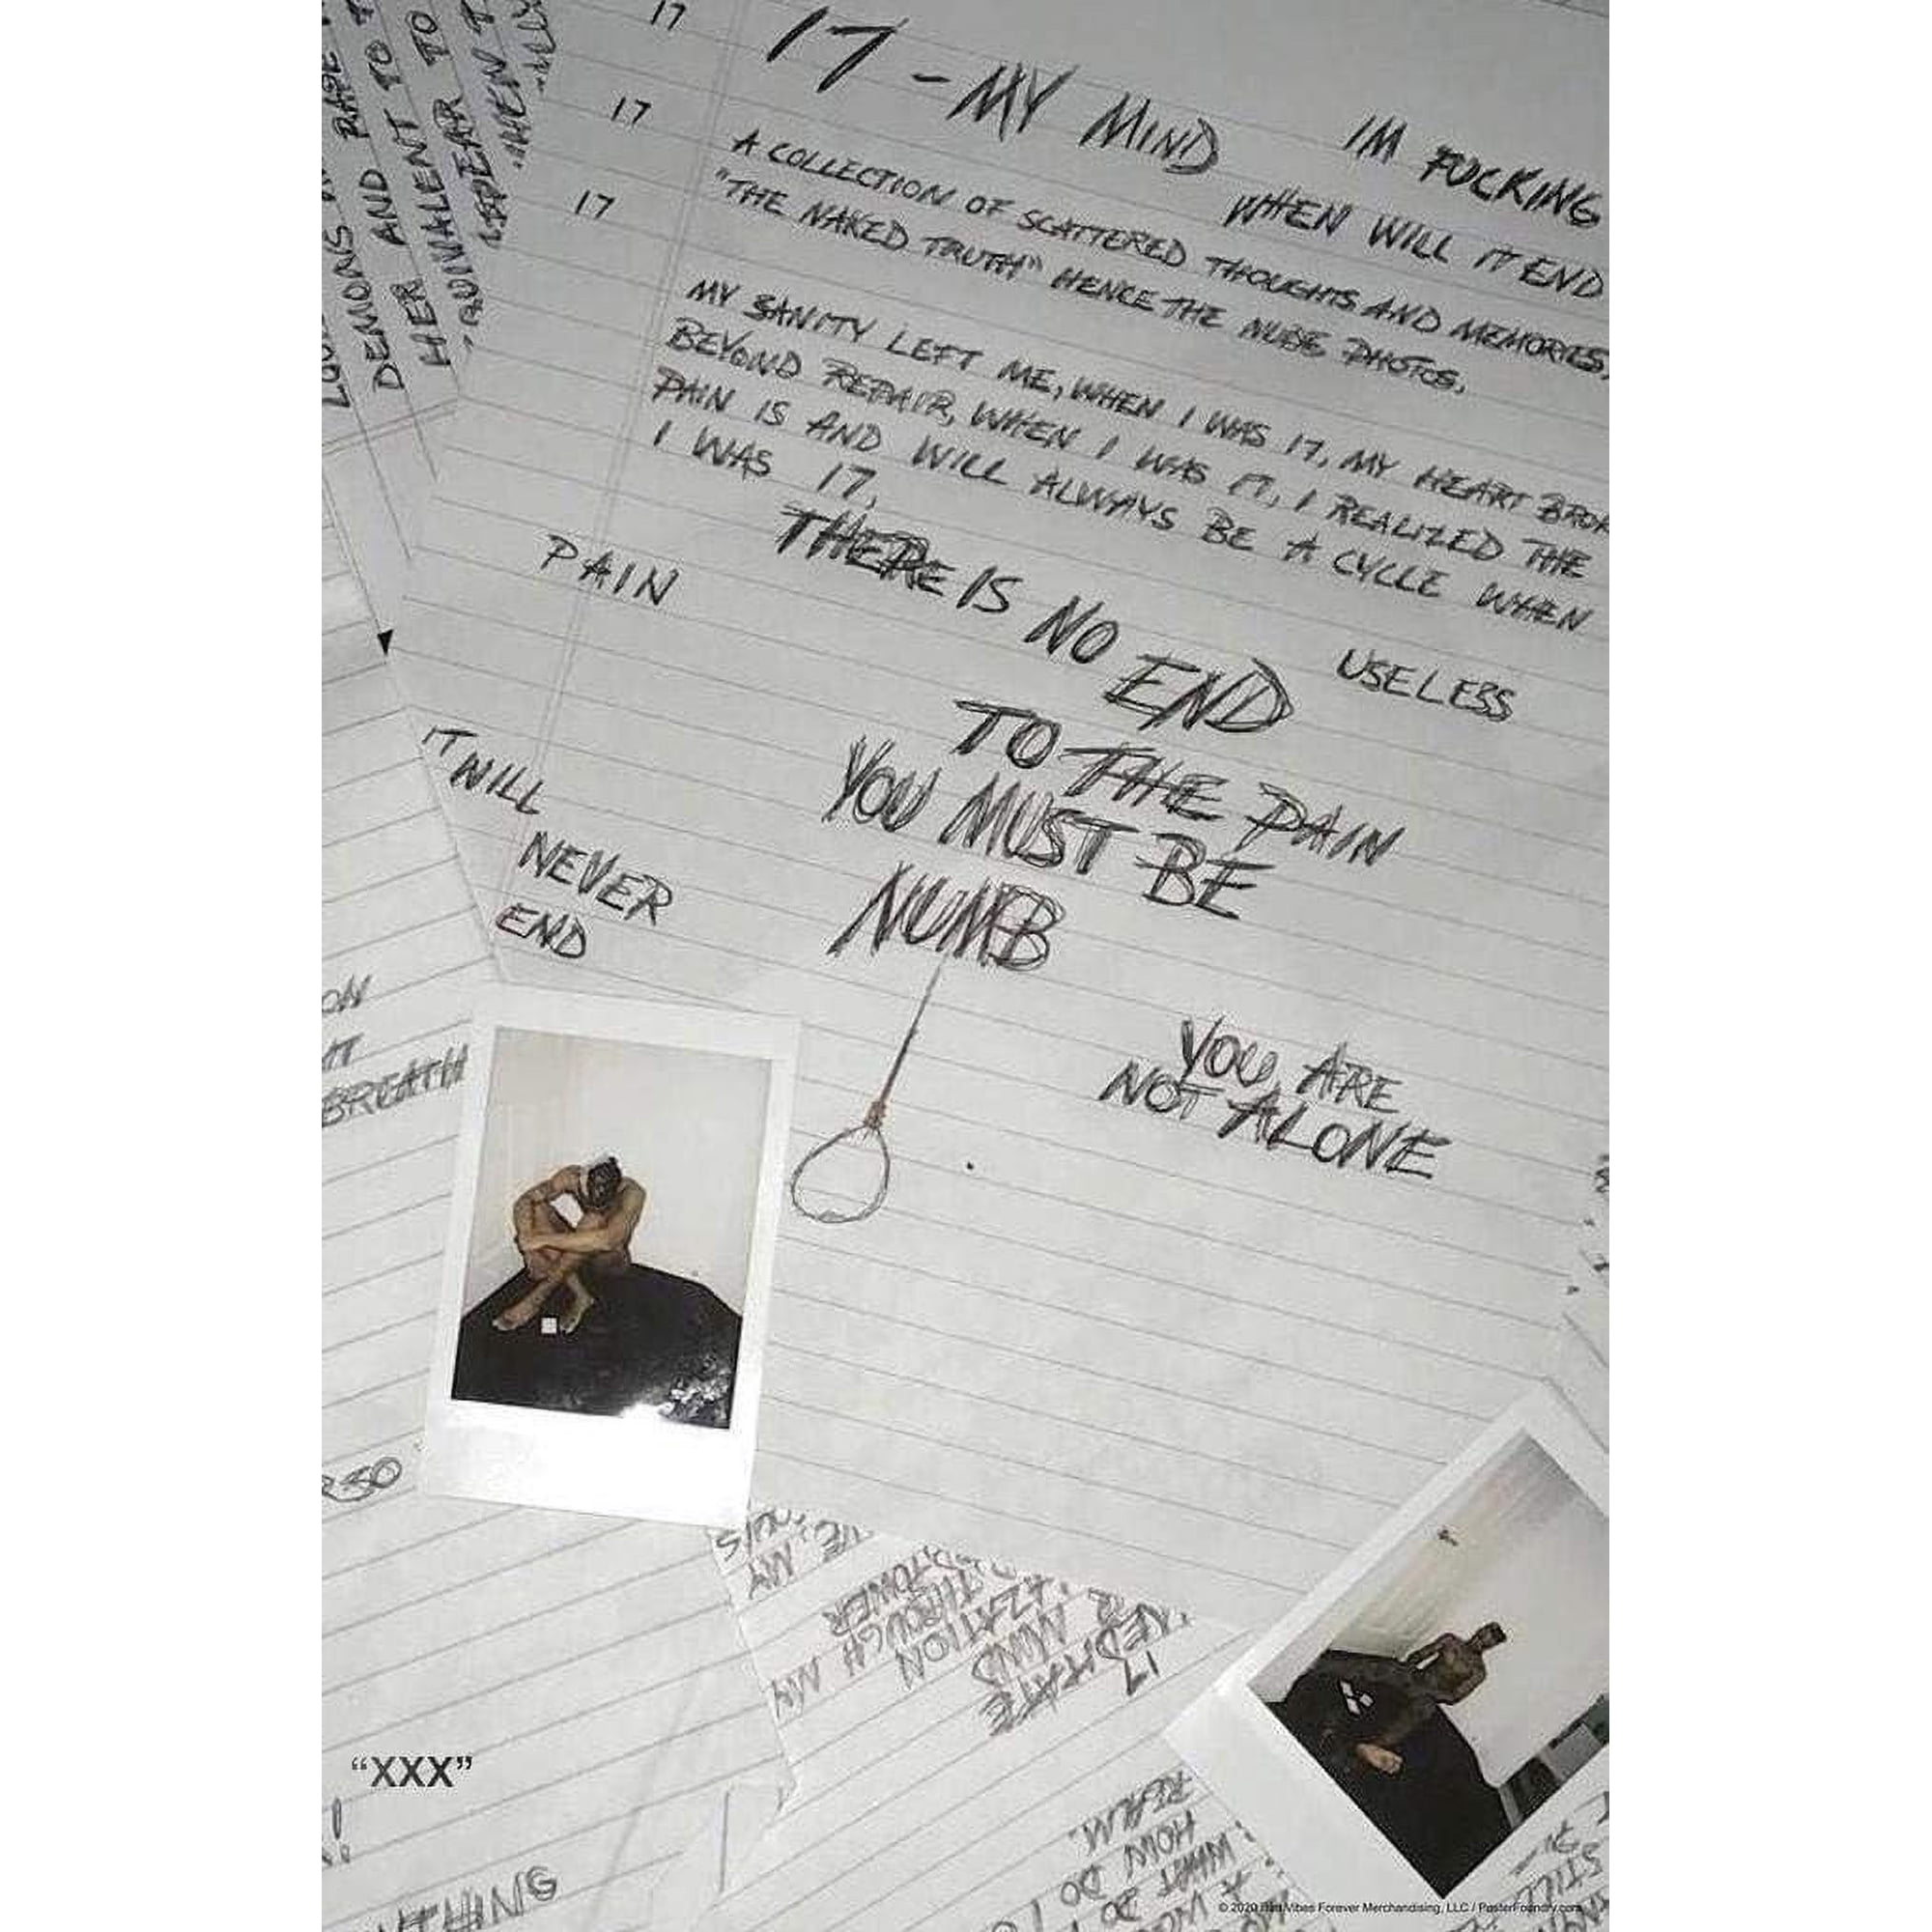 17
17
17
17 - MY MIND
IM FUCKING
WHEN WILL IT END
A COLLECTION OF SCATTERED THOUGHTS AND MEMORIES,
"THE NAKED TRUTH" HENCE THE NUDE PHOTOS.
MY SANITY LEFT ME, WHEN I WAS 17, MY HEART BROK
BEYOND REPAIR, WHEN I WAS 17, I REALIZED THE
PAIN IS AND WILL ALWAYS BE A CYCLE WHEN
I WAS 17,
PAIN
THERE IS NO
END
TO THE PAIN
YOU MUST BE
NUMB
USELESS
IT WILL
NEVER
END
YOU ARE
NOT ALONE
DEMONS
RAPE
DER AND TO
HER AND TO
LENT TO
APPEAR
WHEN
ON
IT
BREATH
MY
TOWER
THROUGH MY
MIND
17
REALM.
HOW DO I
WHAT DO
STILL
THING
“XXX”
© 2020 Bad Vibes Forever Merchandising, LLC / PosterFoundry.com